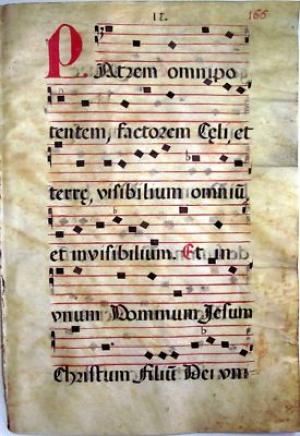 II. 166
PAtrem omnipo
tentem, factorem Cęli, et
terrę, visibilium omniũ,
et invisibilium. Et in
vnum Dominum Jesum
Christum Filiũ Dei vni